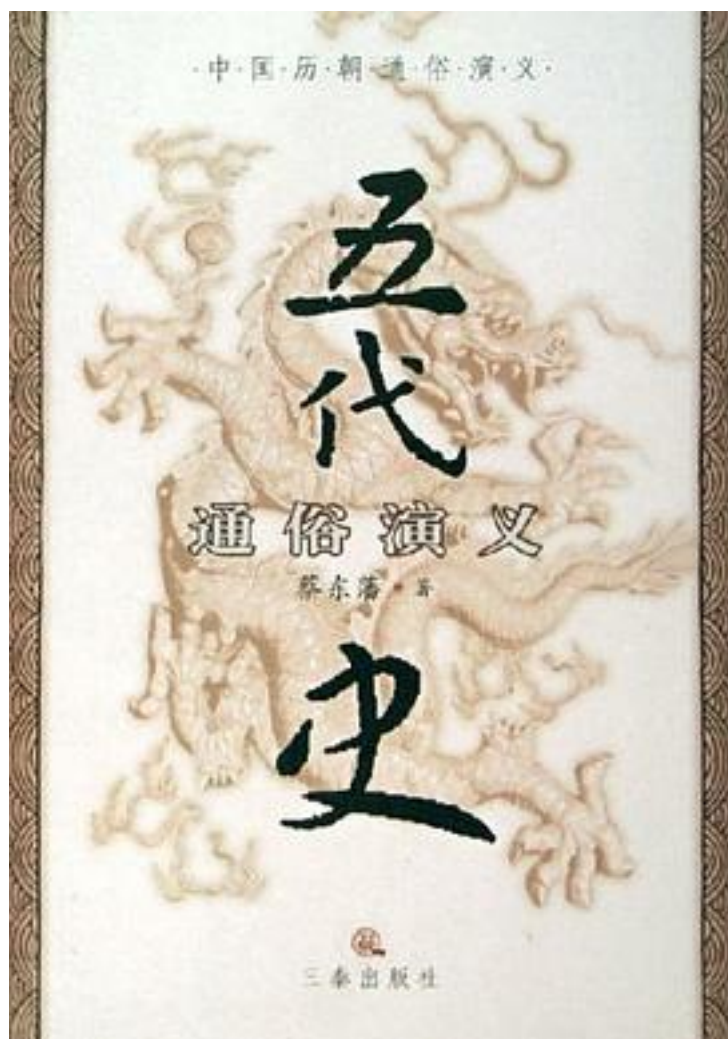 ·中·国·历·朝·通·俗·演·义·
五
代
通俗演义
蔡东藩·著
史
三秦出版社